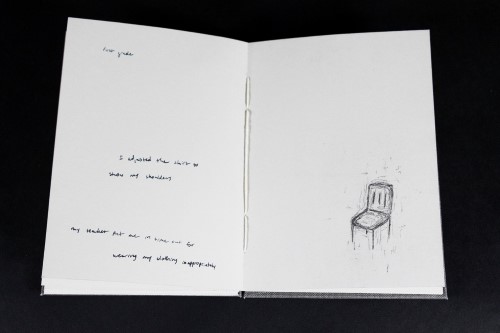 first grade
I adjusted the shirt to
show my shoulders
my teacher put me in time out for
wearing my clothing inappropriately